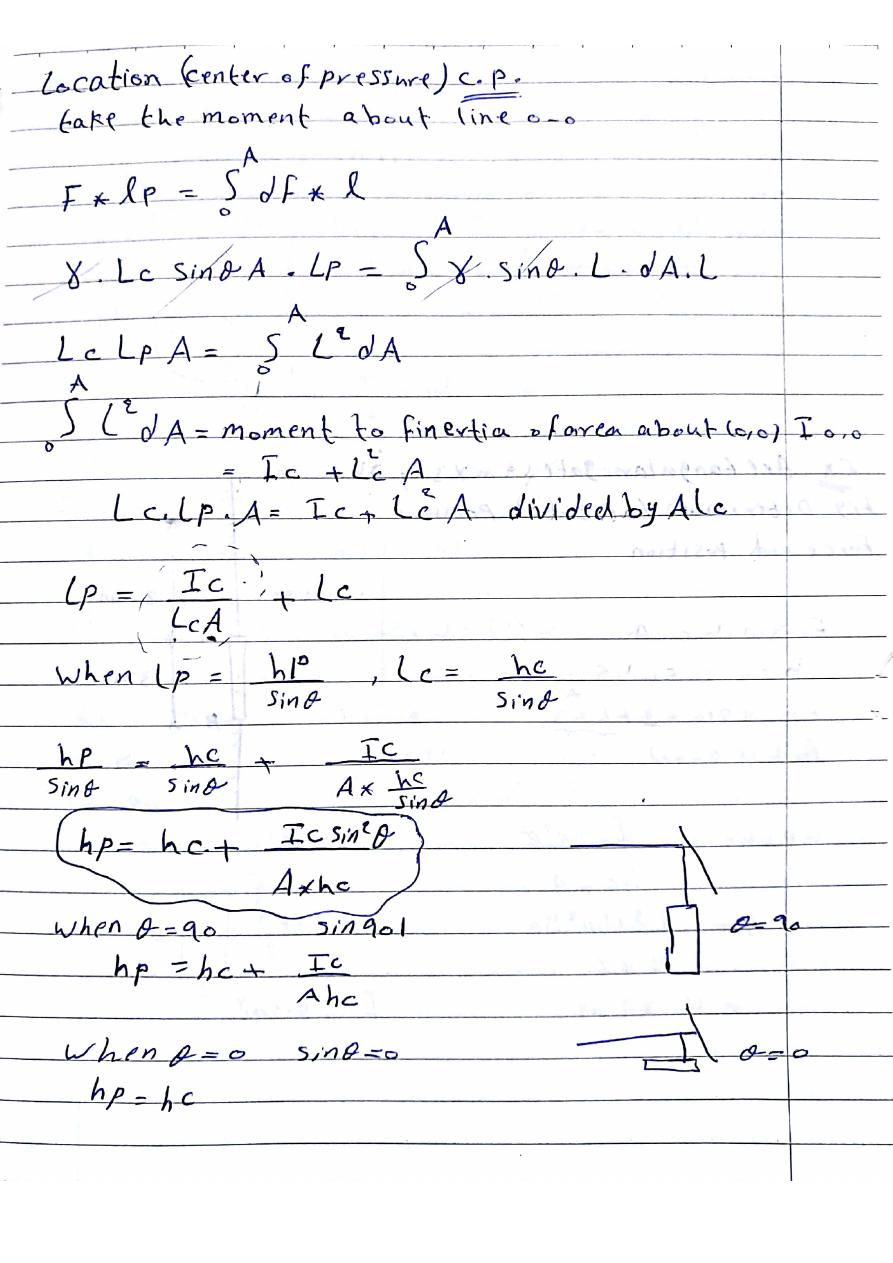 Location (center of pressure) c.p.
take the moment about line o-o
F * lp = ∫₀ᴬ dF * l
γ . Lc sinθ A . Lp = ∫₀ᴬ γ . sinθ . L . dA . L
Lc Lp A = ∫₀ᴬ L² dA
∫₀ᴬ L² dA = moment to finertia of area about (o,o) I o,o
= Ic + Lc² A
Lc . Lp . A = Ic + Lc² A divided by A Lc
Lp = Ic / LcA + Lc
When Lp = hp / sinθ , Lc = hc / sinθ
hp / sinθ = hc / sinθ + Ic / (A * hc / sinθ)
hp = hc + Ic sin²θ / A*hc
When θ = 90 sin 90 1
θ = 90
hp = hc + Ic / A hc
When θ = 0 sinθ = 0
θ = 0
hp = hc